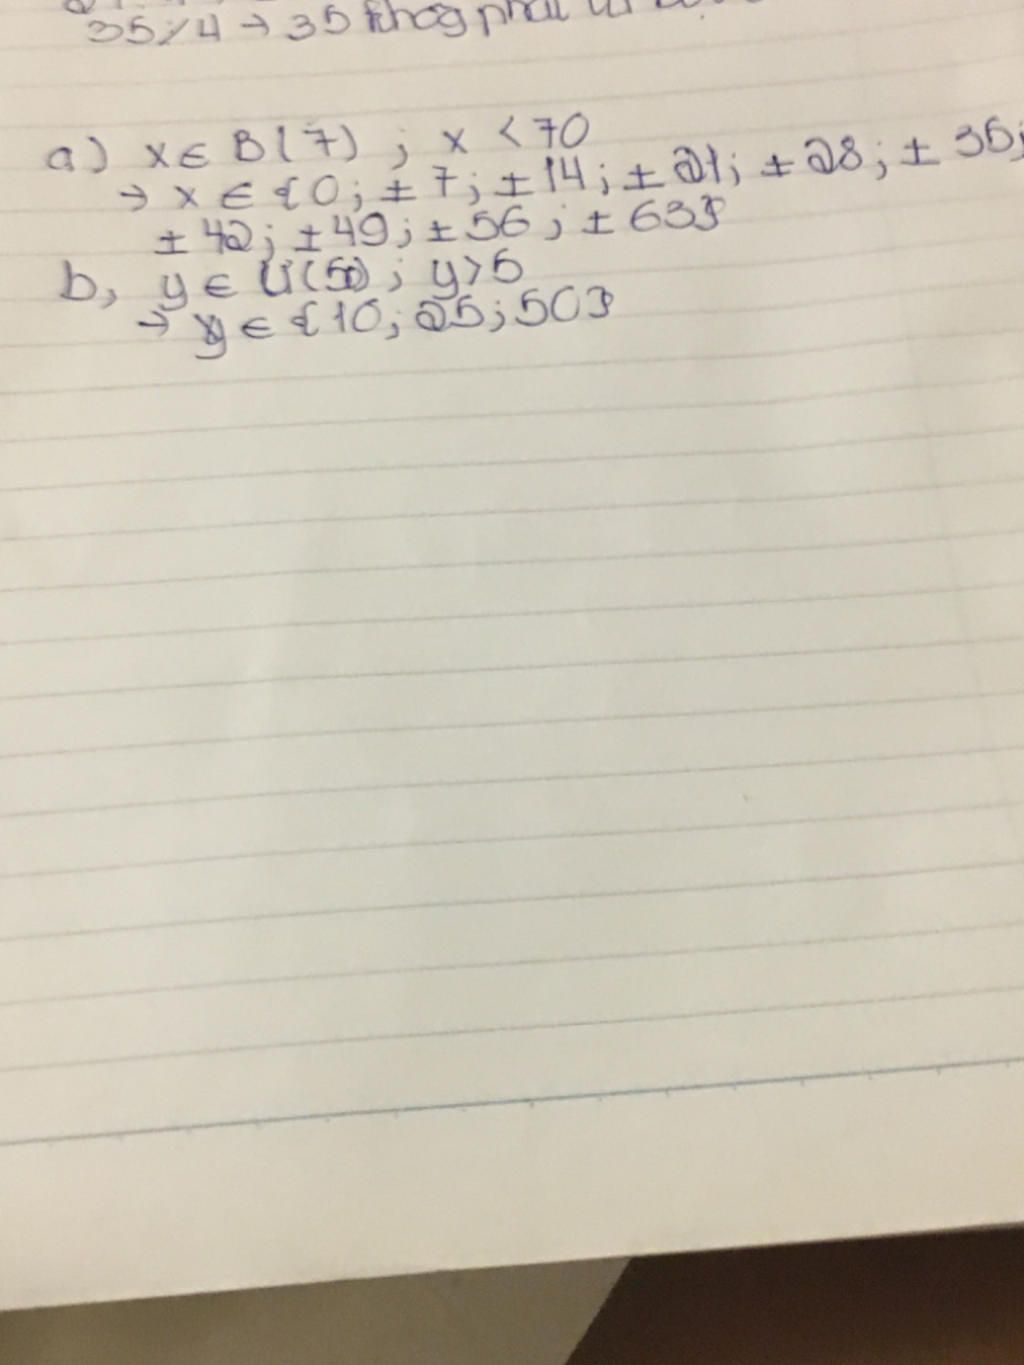 35 ⋮̸ 4 → 35 khôg phải
a) x ∈ B(7) ; x < 70
→ x ∈ {0; ± 7; ± 14; ± 21; ± 28; ± 35;
± 42; ± 49; ± 56; ± 63}
b, y ∈ Ư(50); y > 5
→ y ∈ {10; 25; 50}